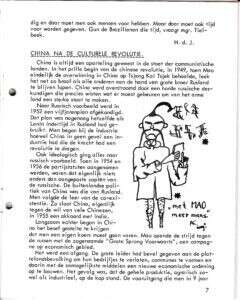 dig en daar moet men ook mensen voor hebben. Maar daar moet ook tijd
voor worden gegeven. Gun de Brazilianen die tijd, vraagt mgr. Tiel-
beek.
H. d. J.
CHINA NA DE CULTURELE REVOLUTIE.
China is altijd een spanteling geweest in de staat der communistische
landen. In het prille begin van de chinese revolutie, in 1949, toen Mao
eindelijk de overwinning in China op Tsjang Kai Tsjek behaalde, leek
het net als zo snel als alle anderen aan de hand van grote broer Rusland
te blijven lopen. China werd overstroomd door een horde russische des-
kundigen die precies wisten wat er moest gebeuren om van het arme
land een sterke staat te maken.
Naar Russisch voorbeeld werd in
1952 een vijfjarenplan afgekondigd.
Dat plan was nagenoeg hetzelfde als
Lenin indertijd in Rusland had inge-
bruikt. Men begon bij de industrie
hoewel China in geen geval een in-
dustrie had die de kracht had een
revolutie te dragen.
Ook ideologisch ging alles naar
russisch voorbeeld. Toen in 1954 en
1956 de partijstatuten aangenomen
werden, waren dat eigenlijk niets
anders dan aangepaste copiën van
de russische. De buitenlandse poli-
tiek van China was die van Rusland.
Men volgde de leer van de coexis-
tentie. Zo sloot China, eigenlijk
tegen de wil van vele Chinezen,
in 1955 een akkoord met India.
Langzaam echter begon in Chi-
na het besef gewicht te krijgen
dat men een eigen koers moest gaan varen. Mao spande de strijd tegen
de russen met de zogenaamde "Grote Sprong Voorwaarts", een campag-
ne op economisch gebied.
Het werd een afgang. De grote leider had bevel gegeven aan de plat-
telandsbevolking om hun bedrijfjes te verlaten, communes te vormen en
daarin met de aanwezige middelen een nieuwe economische ordening
op te bouwen. Het gevolg was, dat de gehele produktie, agrarisch zo-
wel als industrieel, op de kop stond. De vooruitgang die men in 9 jaar
met MAO
meer mans.
7